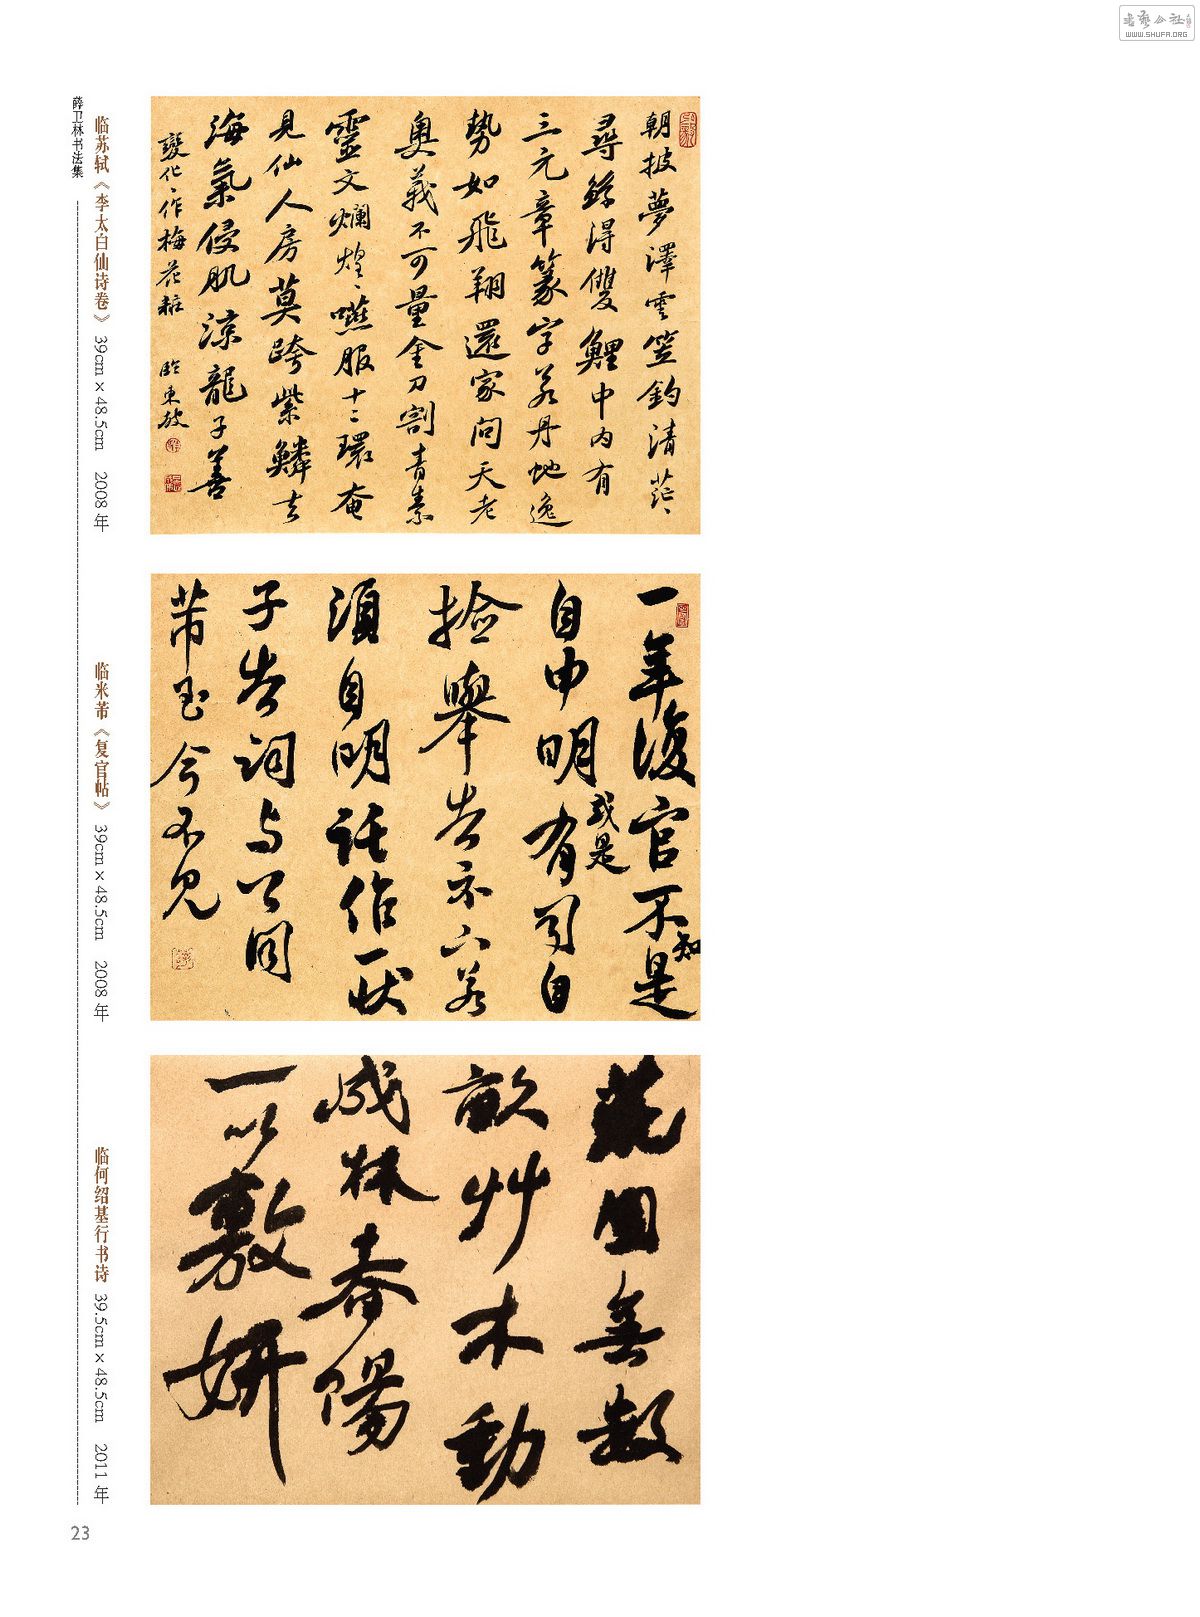 书艺公社
WWW.SHUFA.ORG
薛卫林书法集
临苏轼《李太白仙诗卷》 39cm×48.5cm 2008年
朝披夢澤雲笠釣清茫〻
尋絲得雙鯉中内有
三元章篆字若丹虵逸
勢如飛翔還家問天老
奥義不可量金刀割青素
靈文爛煌〻嚥服十二環奄
見仙人房莫跨紫鱗去
海氣侵肌涼龍子善
變化〻作梅花粧 臨東坡
临米芾《复官帖》 39cm×48.5cm 2008年
一年復官不知是
自申明或是有司自
撿舉告示下若
須自明託作一狀
子告詞与公同
芾至今不見
临何绍基行书诗 39.5cm×48.5cm 2011年
荒園無數
畝艸木動
成林春陽
一以敷妍
23